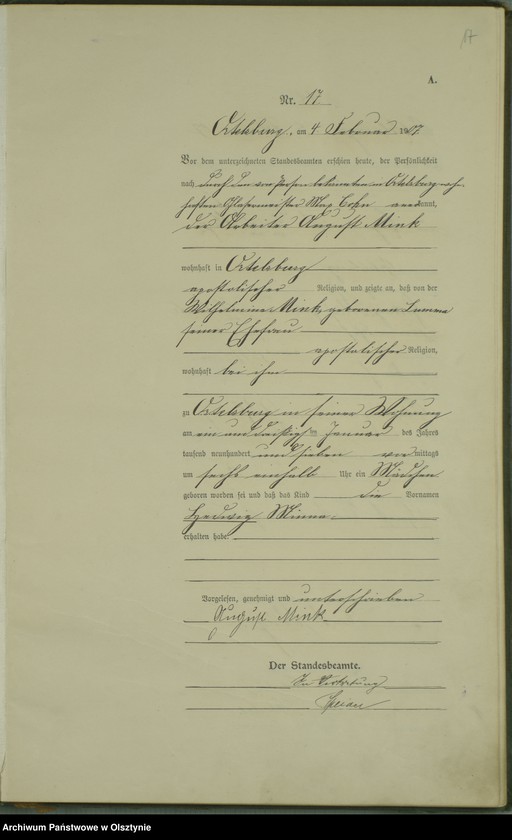 17
A.
Nr. 17
Ortelsburg, am 4. Februar 1907
Vor dem unterzeichneten Standesbeamten erschien heute, der Persönlichkeit
nach durch den von Person bekannten in Ortelsburg wohn-
haften Glasermeister Max Cohn anerkannt,
der Arbeiter August Mink
wohnhaft in Ortelsburg
apostolischer Religion, und zeigte an, daß von der
Wilhelmine Mink, geborenen
seiner Ehefrau
apostolischer Religion,
wohnhaft bei ihm
zu Ortelsburg in seiner Wohnung
am ein und dreißigsten Januar des Jahres
tausend neunhundert und sieben vormittags
um sechs einhalb Uhr ein Mädchen
geboren worden sei und daß das Kind die Vornamen
Hedwig Minna
erhalten habe.
Vorgelesen, genehmigt und unterschrieben
August Mink
Der Standesbeamte.
In Vertretung
Archiwum Państwowe w Olsztynie